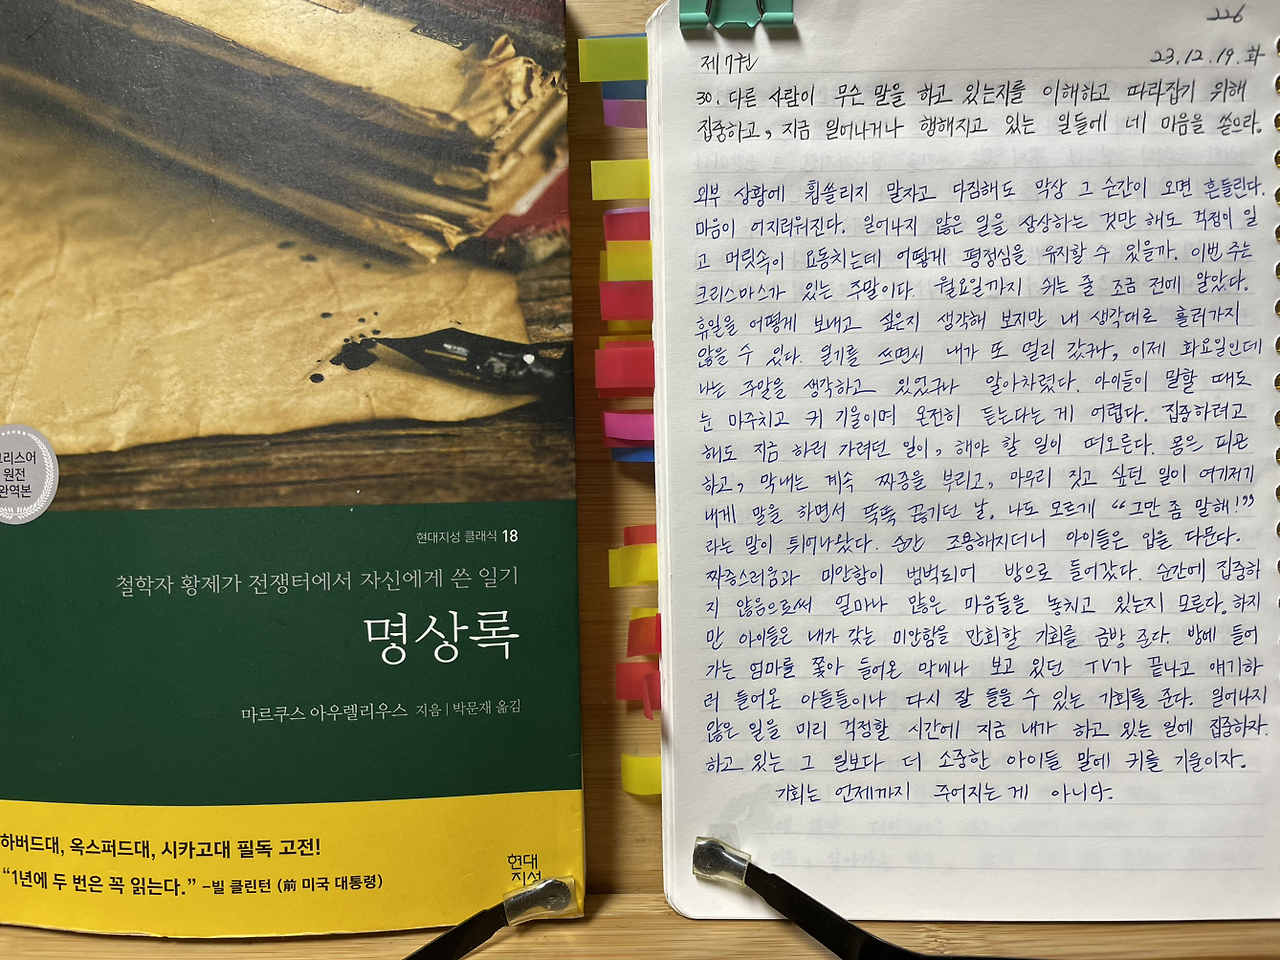 그리스어
원전
완역본
현대지성 클래식 18
철학자 황제가 전쟁터에서 자신에게 쓴 일기
명상록
마르쿠스 아우렐리우스 지음 | 박문재 옮김
하버드대, 옥스퍼드대, 시카고대 필독 고전!
“1년에 두 번은 꼭 읽는다.” –빌 클린턴 (前 미국 대통령)
현대
지성
226
제7권 23.12.19.화
30. 다른 사람이 무슨 말을 하고 있는지를 이해하고 따라잡기 위해
집중하고, 지금 일어나거나 행해지고 있는 일들에 네 마음을 쏟으라.
외부 상황에 휩쓸리지 말자고 다짐해도 막상 그 순간이 오면 흔들린다.
마음이 어지러워진다. 일어나지 않은 일을 상상하는 것만 해도 걱정이 일
고 머릿속이 요동치는데 어떻게 평정심을 유지할 수 있을까. 이번 주는
크리스마스가 있는 주말이다. 월요일까지 쉬는 줄 조금 전에 알았다.
휴일을 어떻게 보내고 싶은지 생각해 보지만 내 생각대로 흘러가지
않을 수 있다. 일기를 쓰면서 내가 또 멀리 갔구나, 이제 화요일인데
나는 주말을 생각하고 있었구나 알아차렸다. 아이들이 말할 때도
눈 마주치고 귀 기울이며 온전히 듣는다는 게 어렵다. 집중하려고
해도 지금 하러 가려던 일이, 해야 할 일이 떠오른다. 몸은 피곤
하고, 막내는 계속 짜증을 부리고, 마무리 짓고 싶던 일이 여기저기
내게 말을 하면서 뚝뚝 끊기던 날, 나도 모르게 “그만 좀 말해!”
라는 말이 튀어나왔다. 순간 조용해지더니 아이들은 입을 다문다.
짜증스러움과 미안함이 범벅되어 방으로 들어갔다. 순간에 집중하
지 않음으로써 얼마나 많은 마음들을 놓치고 있는지 모른다. 하지
만 아이들은 내가 갖는 미안함을 만회할 기회를 금방 준다. 방에 들어
가는 엄마를 쫓아 들어온 막내나 보고 있던 TV가 끝나고 얘기하
러 들어온 아들들이나 다시 잘 들을 수 있는 기회를 준다. 일어나지
않은 일을 미리 걱정할 시간에 지금 내가 하고 있는 일에 집중하자.
하고 있는 그 일보다 더 소중한 아이들 말에 귀를 기울이자.
기회는 언제까지 주어지는 게 아니다.